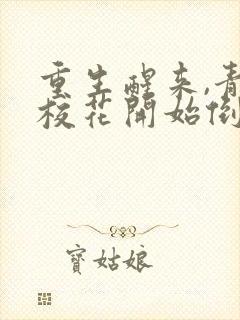 重生醒来,青
校花開始倒
寶姑娘